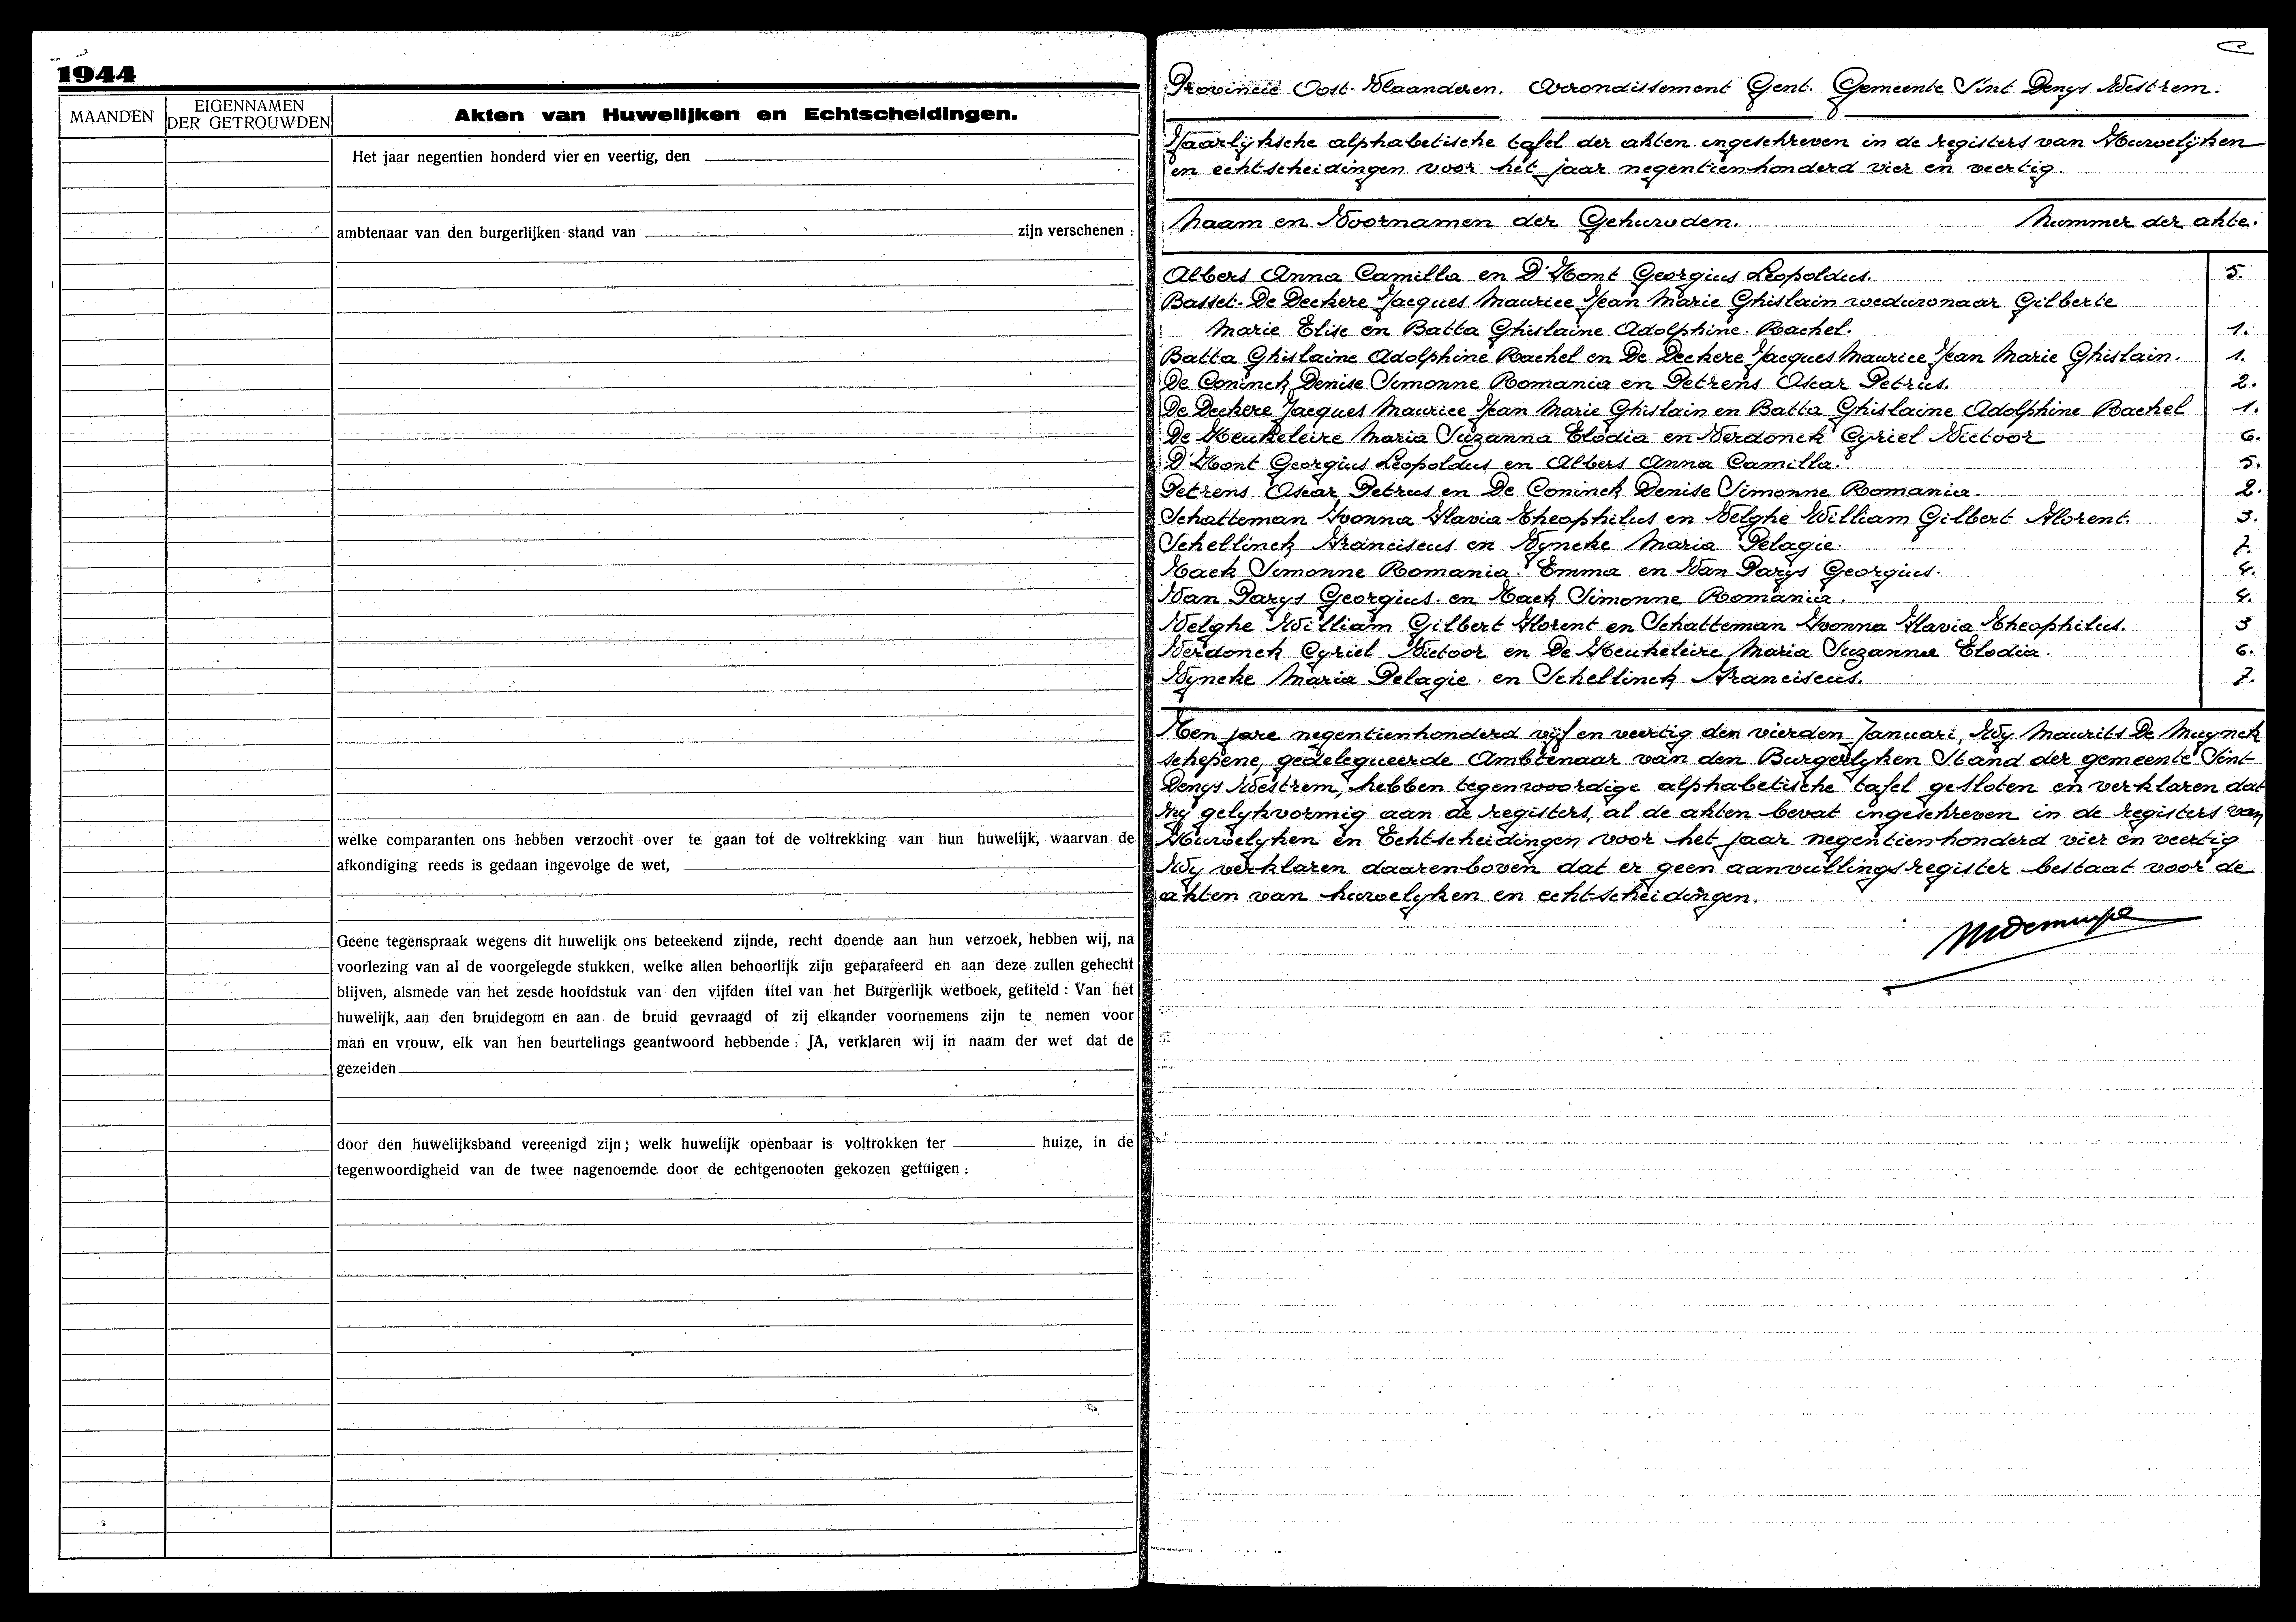 1944
MAANDEN
EIGENNAMEN
DER GETROUWDEN
Akten van Huwelijken en Echtscheidingen.
Het jaar negentien honderd vier en veertig, den
ambtenaar van den burgerlijken stand van zijn verschenen :
welke comparanten ons hebben verzocht over te gaan tot de voltrekking van hun huwelijk, waarvan de
afkondiging reeds is gedaan ingevolge de wet,
Geene tegenspraak wegens dit huwelijk ons beteekend zijnde, recht doende aan hun verzoek, hebben wij, na
voorlezing van al de voorgelegde stukken, welke allen behoorlijk zijn geparafeerd en aan deze zullen gehecht
blijven, alsmede van het zesde hoofdstuk van den vijfden titel van het Burgerlijk wetboek, getiteld : Van het
huwelijk, aan den bruidegom en aan de bruid gevraagd of zij elkander voornemens zijn te nemen voor
man en vrouw, elk van hen beurtelings geantwoord hebbende : JA, verklaren wij in naam der wet dat de
gezeiden
door den huwelijksband vereenigd zijn; welk huwelijk openbaar is voltrokken ter huize, in de
tegenwoordigheid van de twee nagenoemde door de echtgenooten gekozen getuigen :
Provincie Oost-Vlaanderen. Arrondissement Gent. Gemeente Sint Denys Westrem.
Jaarlyksche alphabetische tafel der akten ingeschreven in de registers van Huwelijken
en echtscheidingen voor het jaar negentienhonderd vier en veertig.
Naam en Voornamen der Gehuwden. Nummer der akte.
Albers Anna Camilla en D'Hont Georgius Leopoldus. 5.
Basset-De Deckere Jacques Maurice Jean Marie Ghislain weduwnaar Gilberte
Marie Elise en Batta Ghislaine Adolphine Rachel. 1.
Batta Ghislaine Adolphine Rachel en De Deckere Jacques Maurice Jean Marie Ghislain. 1.
De Coninck Denise Simonne Romania en Petrens Oscar Petrus. 2.
De Deckere Jacques Maurice Jean Marie Ghislain en Batta Ghislaine Adolphine Rachel 1.
De Heukeleire Maria Suzanna Elodia en Verdonck Cyriel Victoor 6.
D'Hont Georgius Leopoldus en Albers Anna Camilla. 5.
Petrens Oscar Petrus en De Coninck Denise Simonne Romania. 2.
Schatteman Yvonna Flavia Theophilus en Velghe William Gilbert Florent. 3.
Schellinck Franciscus en Vyncke Maria Pelagie. 7.
Tack Simonne Romania Emma en Van Parys Georgius. 4.
Van Parys Georgius en Tack Simonne Romania. 4.
Velghe William Gilbert Florent en Schatteman Yvonna Flavia Theophilus. 3
Verdonck Cyriel Victoor en De Heukeleire Maria Suzanna Elodia. 6.
Vyncke Maria Pelagie en Schellinck Franciscus. 7.
Ten jare negentienhonderd vijf en veertig den vierden Januari, Wy Maurits De Muynck
schepene, gedelegueerde Ambtenaar van den Burgerlyken Stand der gemeente Sint-
Denys Westrem, hebben tegenwoordige alphabetische tafel gesloten en verklaren dat
hy gelykvormig aan de registers, al de akten bevat ingeschreven in de registers van
Huwelyken en Echtscheidingen voor het jaar negentienhonderd vier en veertig
Wy verklaren daarenboven dat er geen aanvullingsregister bestaat voor de
akten van huwelyken en echtscheidingen.